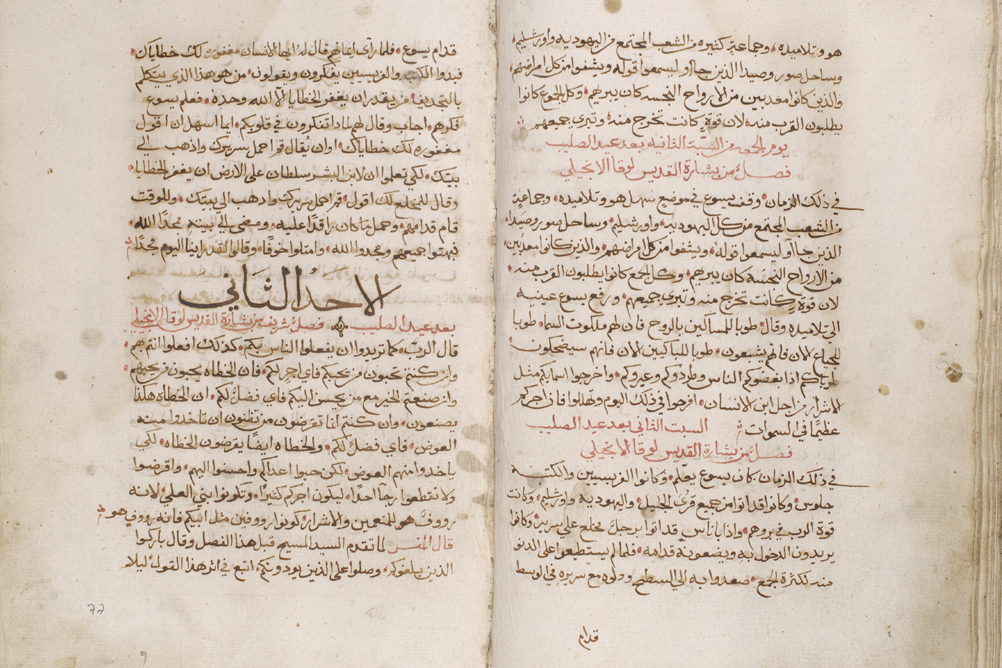 هو وتلاميذه وجماعة كثيرة من الشعب المجتمع من اليهودية واورشليم
وساحل صور وصيدا الذين جاوا ليسمعوا قوله ويشفوا من كل امراضهم
والذين كانوا معذبين من الارواح النجسه كان يبريهم وكل الجموع كانوا
يطلبون القرب منه لان قوة كانت تخرج منه وتبري جميعهم
يوم الجمعه من السبّت الثانيه بعد عيد الصليب
فصل من بشارة القديس لوقا الانجيلي
في ذلك الزمان وقف يسوع في موضع سهل هو وتلاميذه وجماعة
من الشعب المجتمع من كل اليهودية واورشليم وساحل صور وصيدا
الذين جاوا ليسمعوا قوله ويشفوا من كل امراضهم والذين كانوا معذبين
من الارواح النجسه كان يبريهم وكل الجمع كانوا يطلبون القرب منه
لان قوة كانت تخرج منه وتبري جميعهم ورفع يسوع عينيه
الى تلاميذه وقال طوبا للمساكين بالروح فان لهم ملكوت السما طوبا
للجياع الان فانهم يشبعون طوبا للباكيين الان فانهم سيضحكون
طوباكم اذا بغضوكم الناس وطردوكم وعيروكم واخرجوا اسمايكم مثل
الاشرار من اجل ابن الانسان افرحوا في ذلك اليوم وتهللوا فان اجركم
عظيمًا في السموات السبت الثاني بعد عيد الصليب
فصل من بشارة القديس لوقا الانجيلي
في ذلك الزمان كان يسوع يعلم وكانوا الفريسيين والكتبة
جلوس وكانوا قد اتوا من جميع قرى الجليل واليهودية واورشليم وكانت
قوة الرب في بروهم واذا باناس قد اتوا برجل مخلع على سرير وكانوا
يريدون الدخول به ويضعونه قدامه فلما لم يستطيعوا على الدنو
منه لكثرة الجمع صعدوا به الى السطح ودلوه مع سريره في الوسط
قدام
قدام يسوع فلما راى ايمانهم قال له ايها الانسان مغفوره لك خطاياك
فبدوا الكتبه والفريسيين يفكرون ويقولون من هو هذا الذي يتكلم
بالتجديف من يقدر ان يغفر الخطايا الا الله وحده فعلم يسوع
فكرهم اجاب وقال لهم لماذا تفكرون في قلوبكم ايما اسهل ان اقول
مغفوره لك خطاياك او ان يقال قم احمل سريرك واذهب الى
بيتك لكي تعلموا ان لابن البشر سلطان على الارض ان يغفر الخطايا
وقال للمخلع لك اقول قم احمل سريرك واذهب الى بيتك وللوقت
قام قدامهم وحمل ما كان راقدًا عليه ومضى الى بيته يمجد الله
فبهتوا جميعهم ومجدوا الله وامتلوا خوفًا وقالوا لقد راينا اليوم مجدًا
الاحد الثاني
بعد عيد الصليب فصل شريف من بشارة القديس لوقا الانجيلي
قال الربّ كما تريدوا ان يفعلوا الناس بكم كذلك افعلوا انتم بهم
وان كنتم تحبون من يحبكم فاي اجر لكم فان الخطاه يحبون من يحبهم
وان صنعتم الخير مع من يحسن اليكم فاي فضل لكم ان الخطاه هكذا
يصنعون وان كنتم انما تقرضون من تظنون ان تاخذوا منه
العوض فاي فضل لكم والخطاه ايضًا يقرضون الخطاه لكي
ياخذوا منهم العوض لكن حبوا اعداكم واحسنوا اليهم واقرضوا
ولا تقطعوا رجا احدًا ليكون اجركم كثيرًا وتكونوا بني العلي لانه
رووفٌ هو للمنعمين والاشرار كونوا رووفين مثل ابيكم فانه رووف هو
قال المفسر لما تقدم السيد المسيح قبل هذا الفصل وقال باركوا
الذين يلعنوكم وصلوا على الذين يودونكم اتبع في اثر هذا القول ليلا